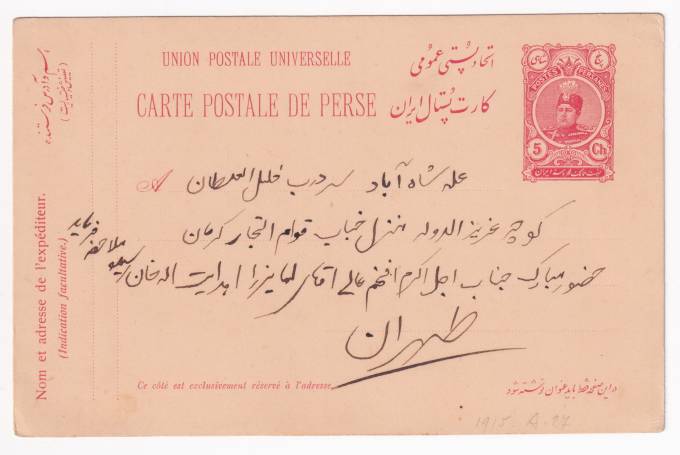 UNION POSTALE UNIVERSELLE
اتحاد پستی عمومی
CARTE POSTALE DE PERSE
کارت پستال ایران
POSTES PERSANES
5 Ch
A
محله شاه آباد سردرب خلیل السلطان
کوچه عزیز الدوله منزل جناب قوام التجار کرمان
حضور مبارک جناب اجل اکرم افخم عالی آقای میرزا هدایت اله خان
ملاحظه فرماید
طهران
Ce côté est exclusivement réservé à l'adresse.
در این صفحه فقط باید عنوان نوشته شود
اسم و آدرس فرستنده
Nom et adresse de l'expéditeur.
(Indication facultative.)
1915 A-27